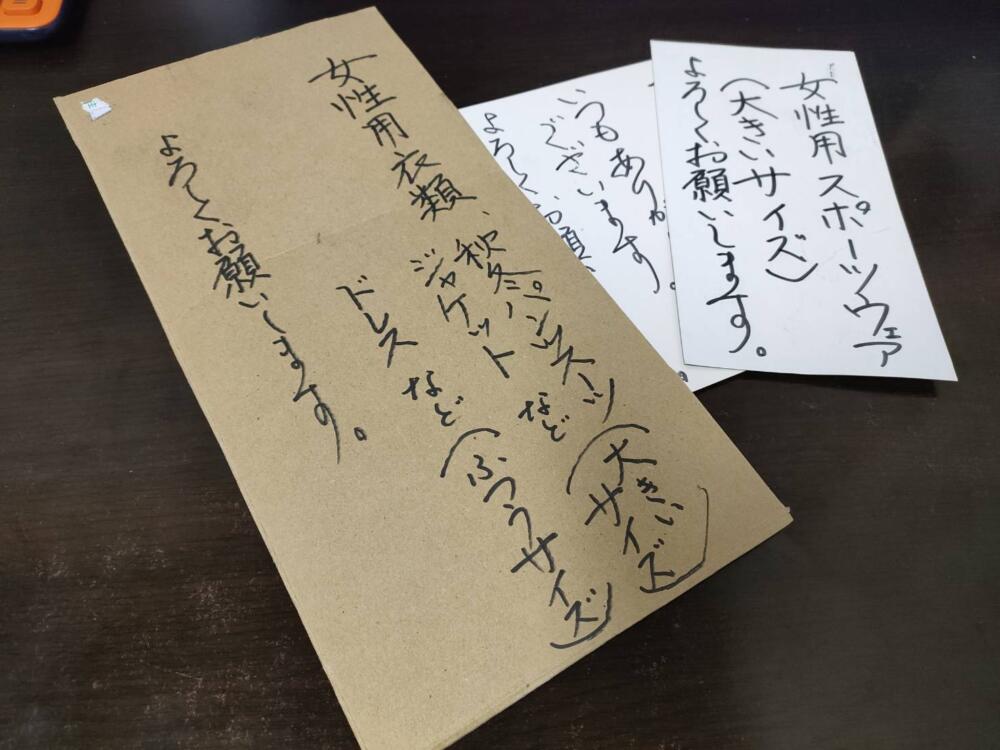 女性用衣類、
秋冬パンツスーツ(大きいサイズ)
ジャケットなど
ドレスなど(ふつうサイズ)
よろしくお願いします。
女性用スポーツウェア
(大きいサイズ)
よろしくお願いします。
いつもありが
ございます。
よろしくお願い